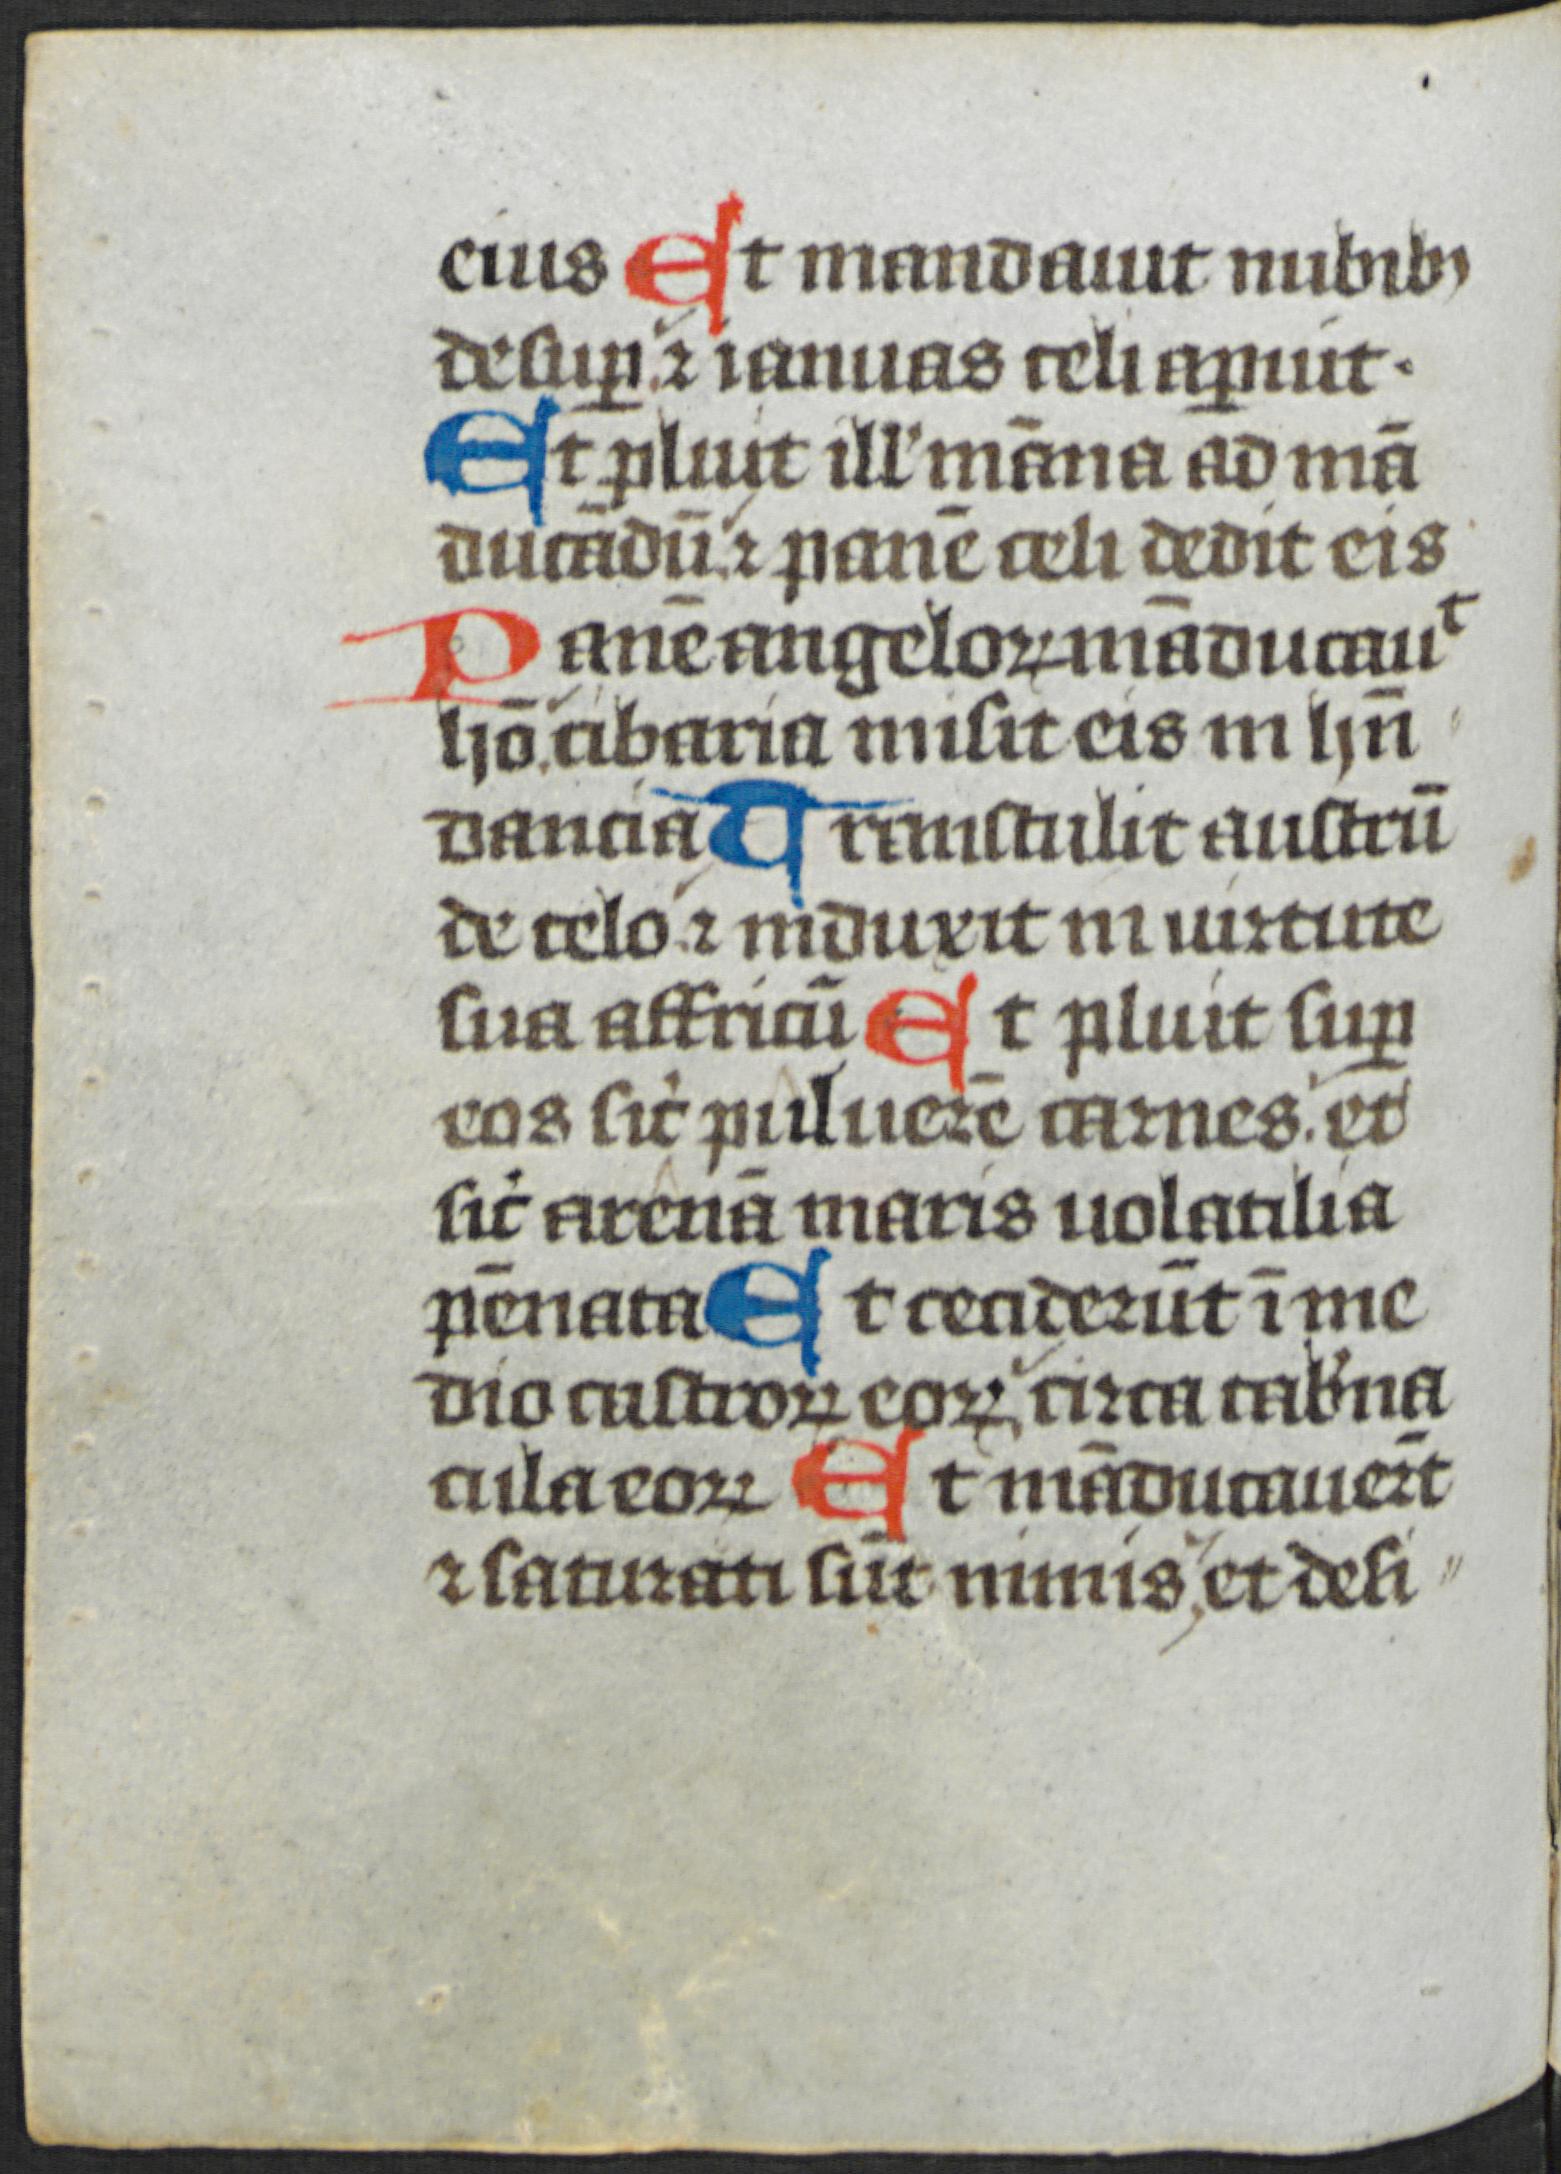 eius Et mandauit nubibꝫ
desuꝑ. ⁊ ianuas celi aꝑuit.
Et pluit ill' māna ad mā
ducādū. ⁊ panē celi dedit eis
Panē angeloꝝ māducauᵗ
hō. cibaria misit eis in hūn
dancia Transtulit austrū
de celo. ⁊ induxit in uirtute
sua affricū Et pluit suꝑ
eos sic̉ puluerē carnes. et
sic̉ arenā maris uolatilia
pēnata Et ceciderūt ī me
dio castroꝝ eoꝝ. circa tab'na
cula eoꝝ Et māducauer̄t
⁊ saturati sūt nimis, et desi〃